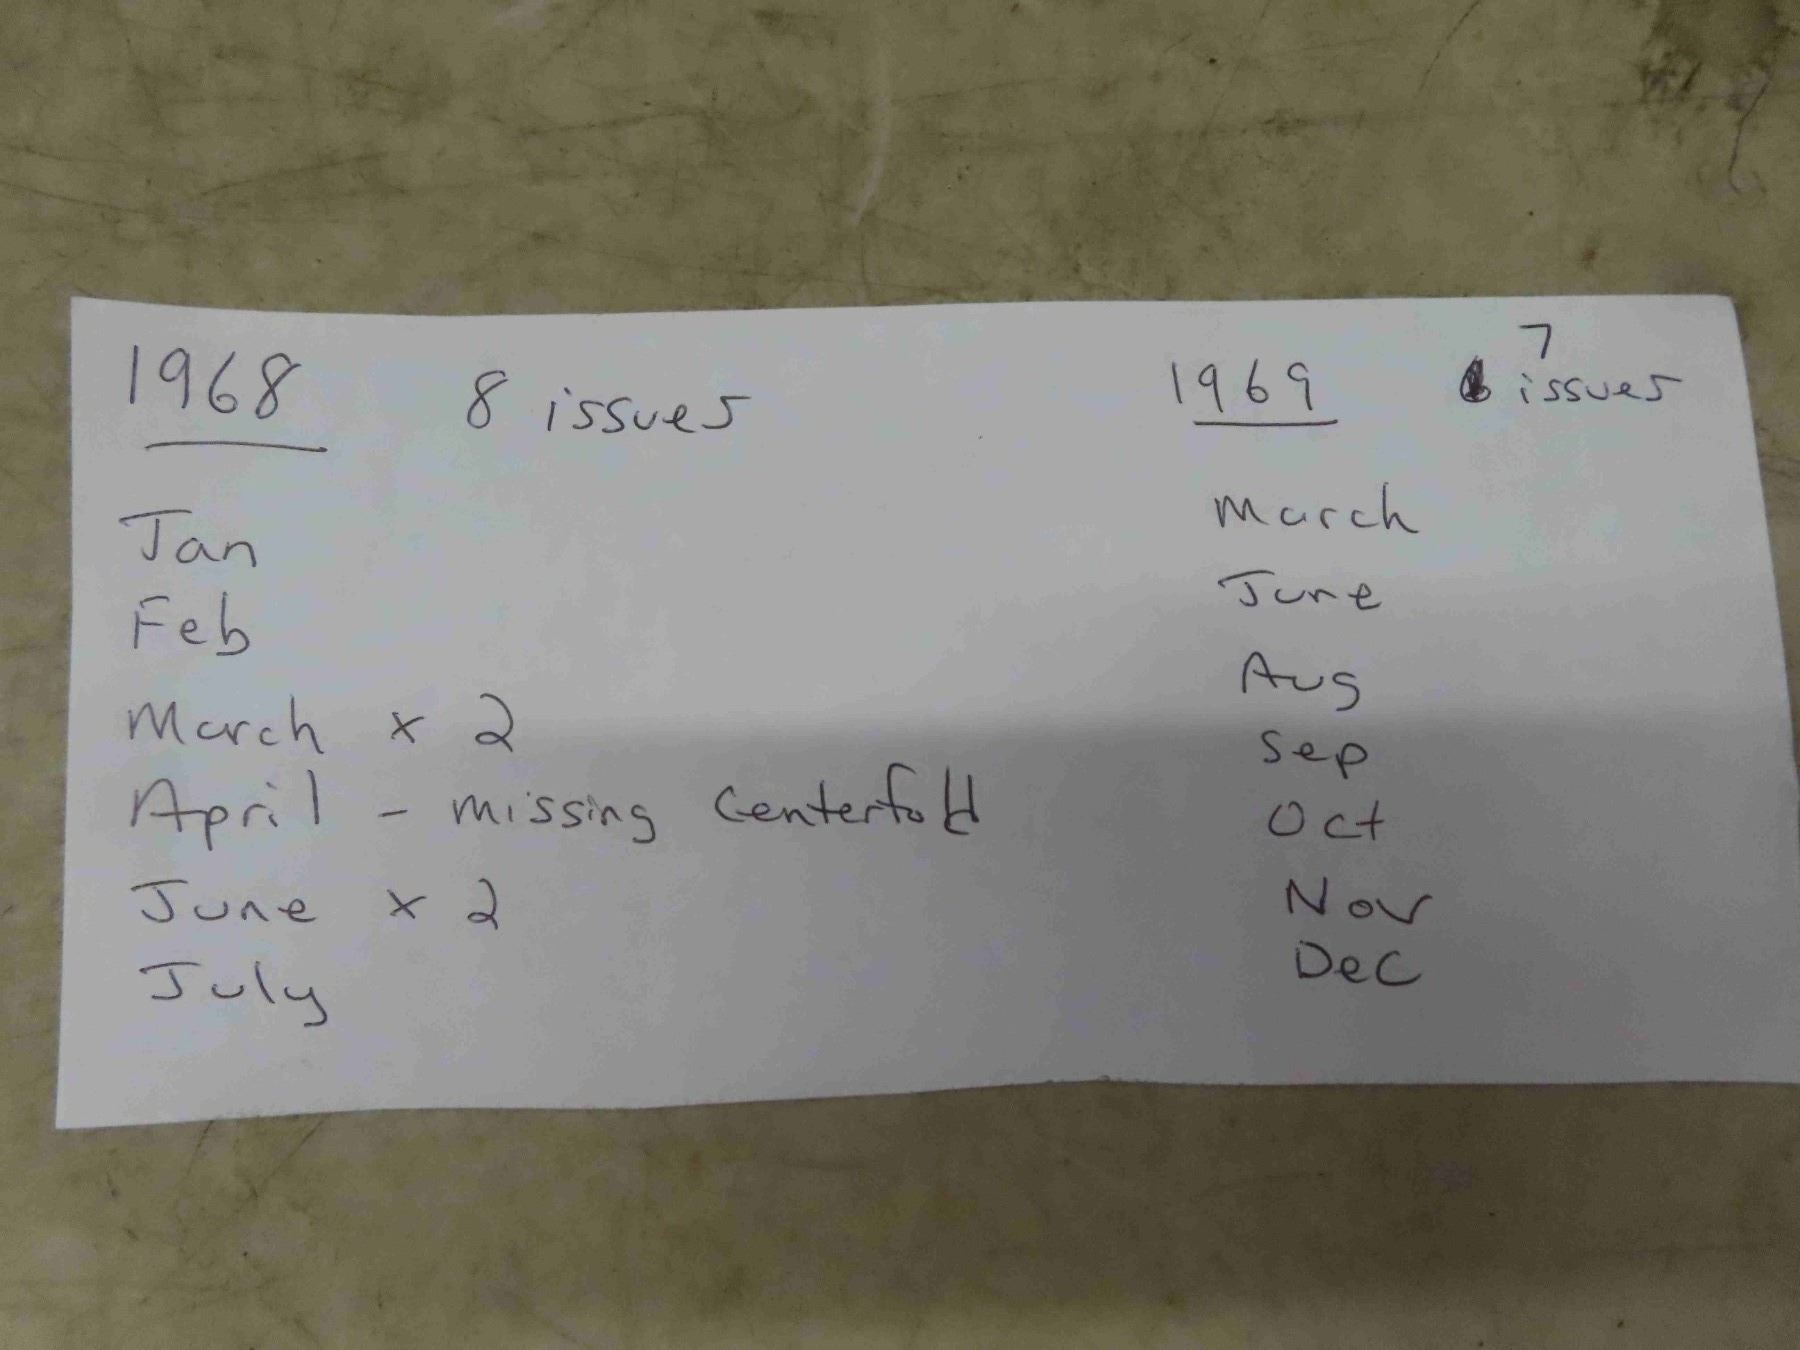 1968 8 issues
Jan
Feb
March x 2
April - missing Centerfold
June x 2
July
1969 7 issues
March
June
Aug
Sep
Oct
Nov
Dec